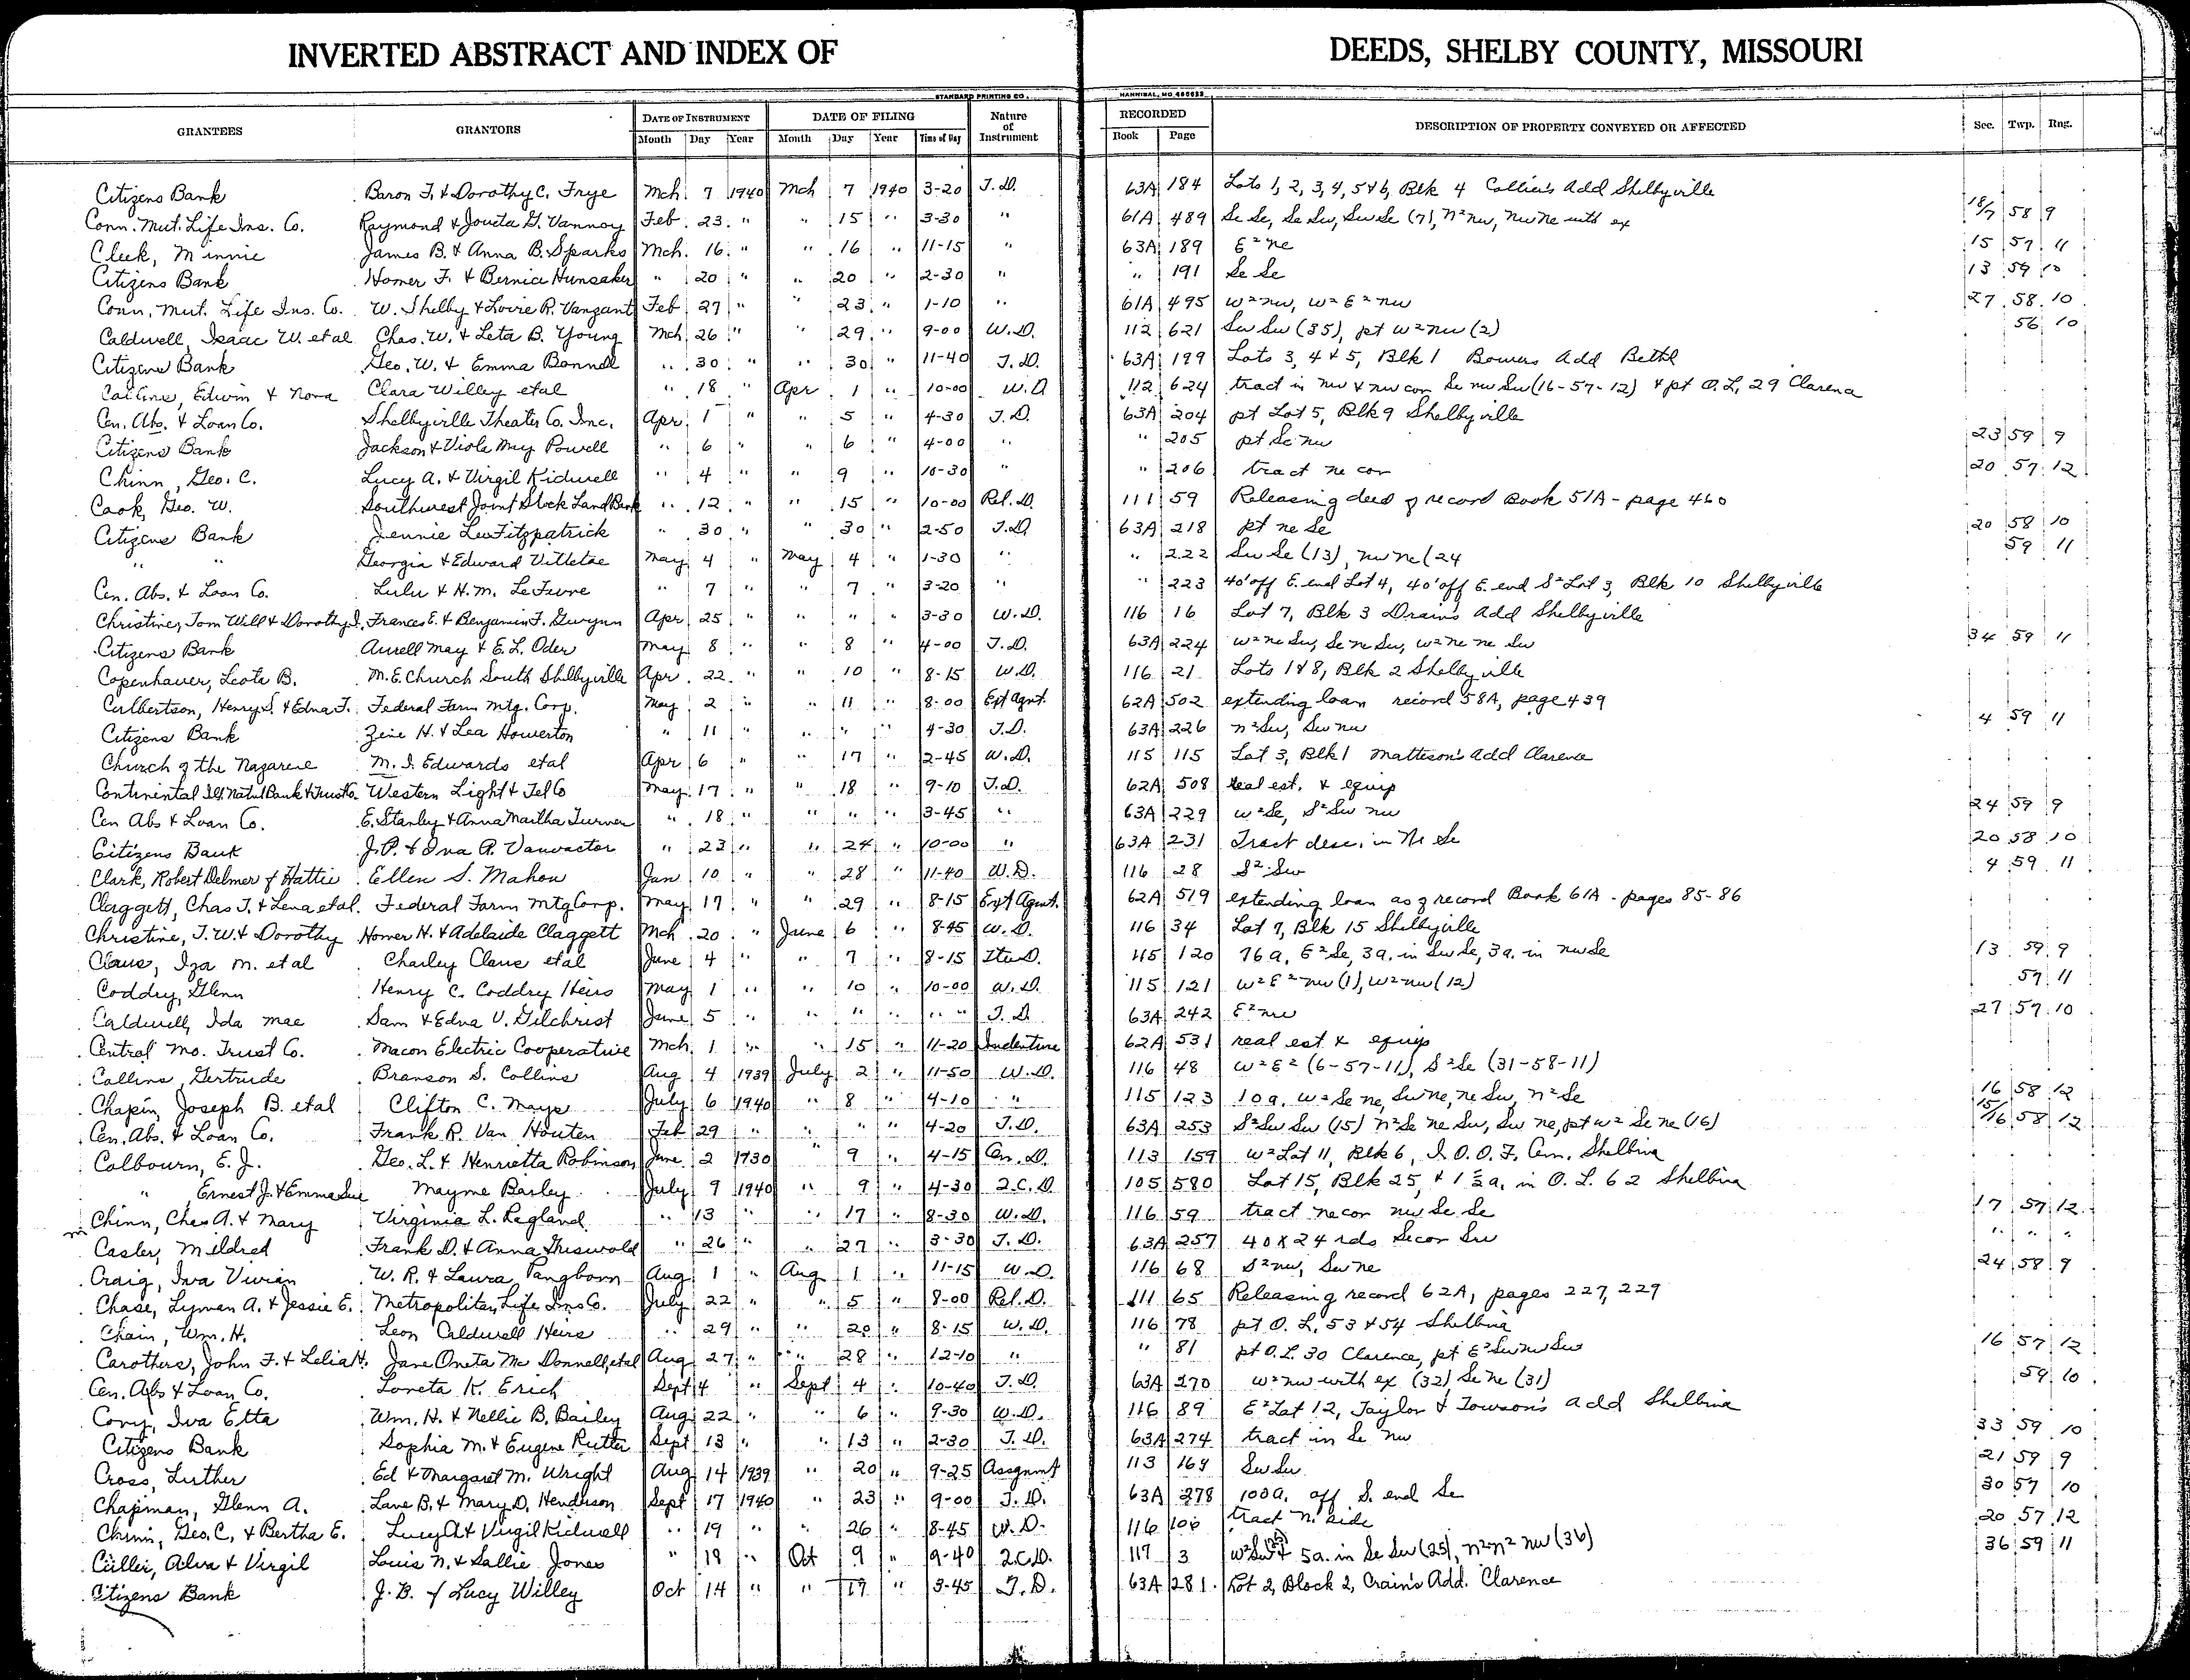 INVERTED ABSTRACT AND INDEX OF DEEDS, SHELBY COUNTY, MISSOURI
STANDARD PRINTING CO. HANNIBAL, MO.
GRANTEES GRANTORS DATE OF INSTRUMENT DATE OF FILING Nature of Instrument RECORDED DESCRIPTION OF PROPERTY CONVEYED OR AFFECTED Sec. Twp. Rng.
Month Day Year Month Day Year Time of Day Book Page
Citizens Bank Baron F. & Dorothy C. Frye Mch 7 1940 Mch 7 1940 3-20 T.D. 63A 184 Lots 1, 2, 3, 4, 5 & 6, Blk 4 Collier's Add Shelbyville
Conn. Mut. Life Ins. Co. Raymond & Joueta G. Vannoy Feb 23 " " 15 " 3-30 " 61A 489 Se Se, Se Sw, Sw Se (7), N² nw, nw ne with ex 18/7 58 9
Cleek, Minnie James B. & Anna B. Sparks Mch. 16 " " 16 " 11-15 " 63A 189 E² ne 15 57 11
Citizens Bank Homer F. & Bernice Hunsaker " 20 " " 20 " 2-30 " " 191 Se Se 13 59 10
Conn. Mut. Life Ins. Co. W. Shelby & Lovie R. Vanzant Feb 27 " " 23 " 1-10 " 61A 495 w² nw, w² E² nw 27 58 10
Caldwell, Isaac W. et al Chas. W. & Leta B. Young Mch 26 " " 29 " 9-00 W.D. 112 621 Sw Sw (35), pt w² nw (2) 56 10
Citizens Bank Geo. W. & Emma Bonnell " 30 " " 30 " 11-40 T.D. 63A 199 Lots 3, 4 & 5, Blk 1 Bowers Add Bethl
Collins, Edwin & Nora Clara Willey etal " 18 " Apr 1 " 10-00 W.D 112 624 tract in nw & nw cor Se nw Sw (16-57-12) & pt O.L. 29 Clarena
Cen. Abs. & Loan Co. Shelbyville Theater Co. Inc. Apr 1 " " 5 " 4-30 T.D. 63A 204 pt Lot 5, Blk 9 Shelbyville
Citizens Bank Jackson & Viola May Powell " 6 " " 6 " 4-00 " " 205 pt Se nw 23 59 9
Chinn, Geo. C. Lucy A. & Virgil Kidwell " 4 " " 9 " 10-30 " " 206 tract ne cor 20 57 12
Cook, Geo. W. Southwest Joint Stock Land Bank " 12 " " 15 " 10-00 Rel. D. 111 59 Releasing deed of record Book 51A - page 460
Citizens Bank Jennie Lee Fitzpatrick " 30 " " 30 " 2-50 T.D. 63A 218 pt ne Se 20 58 10
" " Georgia & Edward Vittetoe May 4 " May 4 " 1-30 " " 222 Sw Se (13), nw ne (24 59 11
Cen. Abs. & Loan Co. Lulu & H.M. LeFevre " 7 " " 7 " 3-20 " " 223 40' off E. end Lot 4, 40' off E. end S² Lot 3, Blk 10 Shelbyville
Christine, Tom Will & Dorothy J. Frances E. & Benjamin F. Gwynn Apr 25 " " " " 3-30 W.D. 116 16 Lot 7, Blk 3 Drain's Add Shelbyville
Citizens Bank Aurell May & E.L. Oder May 8 " " 8 " 4-00 T.D. 63A 224 w² ne Sw, Se ne Sw, w² ne ne Sw 34 59 11
Copenhaver, Leota B. M.E. Church South Shelbyville Apr. 22 " " 10 " 8-15 W.D. 116 21 Lots 1 & 8, Blk 2 Shelbyville
Culbertson, Henry S. & Edna F. Federal Farm Mtg. Corp. May 2 " " 11 " 8-00 Ext Agmt. 62A 502 extending loan record 58A, page 439
Citizens Bank Zene H. & Lea Howerton " 11 " " " " 4-30 T.D. 63A 226 n² Sw, Sw nw 4 59 11
Church of the Nazarene M. I. Edwards etal Apr 6 " " 17 " 2-45 W.D. 115 115 Lot 3, Blk 1 Matteson's Add Clarence
Continental Ill. Natnl Bank & Trust Co. Western Light & Tel Co May 17 " " 18 " 9-10 T.D. 62A 508 real est. & equip
Cen Abs & Loan Co. E. Stanley & Anna Martha Turner " 18 " " " " 3-45 " 63A 229 w² Se, S² Sw nw 24 59 9
Citizens Bank J.P. & Ina A. Vanvactor " 23 " " 24 " 10-00 " 63A 231 Tract desc. in Ne Se 20 58 10
Clark, Robert Delmer & Hattie Ellen S. Mahon Jan 10 " " 28 " 11-40 W.D. 116 28 S² Sw 4 59 11
Claggett, Chas T. & Lena et al. Federal Farm Mtg Corp. May 17 " " 29 " 8-15 Ext Agmt. 62A 519 extending loan as of record Book 61A - pages 85-86
Christine, T.W. & Dorothy Homer H. & Adelaide Claggett Mch 20 " June 6 " 8-45 W.D. 116 34 Lot 7, Blk 15 Shelbyville
Claus, Iza M. et al Charley Claus etal June 4 " " 7 " 8-15 115 120 76a, E² Se, 3a. in Sw Se, 3a. in nw Se 13 59 9
Coddry, Glenn Henry C. Coddry Heirs May 1 " " 10 " 10-00 W.D. 115 121 w² E² nw (1), w² nw (12) 57 11
Caldwell, Ida Mae Sam & Edna V. Gilchrist June 5 " " " " " " T.D. 63A 242 E² nw 27 57 10
Central Mo. Trust Co. Macon Electric Cooperative Mch 1 " " 15 " 11-20 Indenture 62A 531 real est & equip
Collins, Gertrude Branson S. Collins Aug 4 1939 July 2 " 11-50 W.D. 116 48 w² E² (6-57-11), S² Se (31-58-11)
Chapin, Joseph B. et al Clifton C. Mays July 6 1940 " 8 " 4-10 " 115 123 10a. w² Se ne, Sw ne, ne Sw, n² Se 16 58 12
Cen. Abs. & Loan Co. Frank R. Van Houten Feb 29 " " " " 4-20 T.D. 63A 253 S² Sw Sw (15) n² Se ne Sw, Sw ne, pt w² Se ne (16) 15/16 58 12
Colbourn, E.J. Geo. L. & Henrietta Robinson June 2 1930 " 9 " 4-15 Cem. D. 113 159 w² Lot 11, Blk 6, I.O.O.F. Cem. Shelbina
" Ernest J. & Emma Sue Mayme Barley July 9 1940 " 9 " 4-30 Q.C.D. 105 580 Lot 15, Blk 25, & 1½ a. in O.L. 62 Shelbina
Chinn, Chas A. & Mary Virginia L. Ragland " 13 " " 17 " 8-30 W.D. 116 59 tract ne cor nw Se Se 17 57 12
Casler, Mildred Frank D. & Anna Griswold " 26 " " 27 " 3-30 T.D. 63A 257 40 X 24 rds Se cor Sw " " "
Craig, Iva Vivian W.R. & Laura Pangborn Aug 1 " Aug 1 " 11-15 W.D. 116 68 S² nw, Sw ne 24 58 9
Chase, Lyman A. & Jessie E. Metropolitan Life Ins Co. July 22 " " 5 " 8-00 Rel. D. 111 65 Releasing record 62A, pages 227, 229
Chain, Wm. H. Leon Caldwell Heirs " 29 " " 20 " 8-15 W.D. 116 78 pt O.L. 53 & 54 Shelbina
Carothers, John F. & Lelia H. Jane Oneta McDonnell, etal Aug 27 " " 28 " 12-10 " " 81 pt O.L. 30 Clarence, pt E² Sw nw Sw 16 57 12
Cen. Abs & Loan Co. Loreta K. Erich Sept 4 " Sept 4 " 10-40 T.D. 63A 270 w² nw with ex (32) Se ne (31) 59 10
Cory, Iva Etta Wm. H. & Nellie B. Bailey Aug 22 " " 6 " 9-30 W.D. 116 89 E² Lot 12, Taylor & Towson's Add Shelbina
Citizens Bank Sophia M. & Eugene Rutter Sept 13 " " 13 " 2-30 T.D. 63A 274 tract in Se nw 33 59 10
Cross, Luther Ed & Margaret M. Wright Aug 14 1939 " 20 " 9-25 Assgnmt 113 169 Sw Sw 21 59 9
Chapman, Glenn A. Lane B. & Mary D. Henderson Sept 17 1940 " 23 " 9-00 T.D. 63A 278 100a. off S. end Se 30 57 10
Chinn, Geo. C. & Bertha E. Lucy A & Virgil Kidwell " 19 " " 26 " 8-45 W.D. 116 106 tract n. side 20 57 12
Culler, Alva & Virgil Louis N. & Sallie Jones " 19 " Oct 9 " 9-40 Q.C.D. 117 3 w² Sw (25) & 5a. in Se Sw (25), n² n² nw (36) 36 59 11
Citizens Bank J.B. & Lucy Willey Oct 14 " " 17 " 3-45 T.D. 63A 281 Lot 2, Block 2, Crain's Add. Clarence